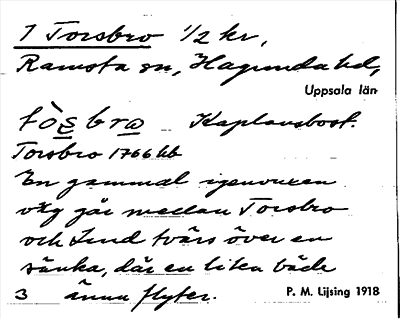 1 Torsbro 1/2 kr,
Ramsta sn, Hagunda hd,
Uppsala län
tòs̲bra̲ Kaplansbost.
Torsbro 1766 hb
En gammal igenvuxen
väg går mellan Torsbro
och Lund tvärs över en
sänka, där en liten bäck
3 ännu flyter. P. M. Lijsing 1918